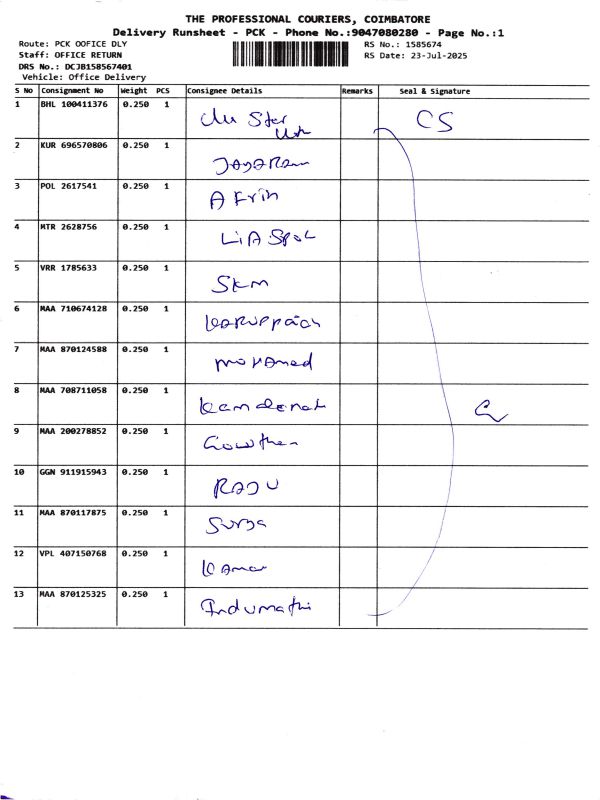 THE PROFESSIONAL COURIERS, COIMBATORE
Delivery Runsheet - PCK - Phone No.:9047080280 - Page No.:1
Route: PCK OOFICE DLY RS No.: 1585674
Staff: OFFICE RETURN RS Date: 23-Jul-2025
DRS No.: DCJB158567401
Vehicle: Office Delivery
S No Consignment No Weight PCS Consignee Details Remarks Seal & Signature
1 BHL 100411376 0.250 1 Star CS
2 KUR 696570806 0.250 1 JayaRam
3 POL 2617541 0.250 1 Afrin
4 MTR 2628756 0.250 1
5 VRR 1785633 0.250 1 SKM
6 MAA 710674128 0.250 1
7 MAA 870124588 0.250 1 mohamed
8 MAA 708711058 0.250 1
9 MAA 200278852 0.250 1 Gowtham
10 GGN 911915943 0.250 1 RAJU
11 MAA 870117875 0.250 1 Surya
12 VPL 407150768 0.250 1
13 MAA 870125325 0.250 1 Indumathi